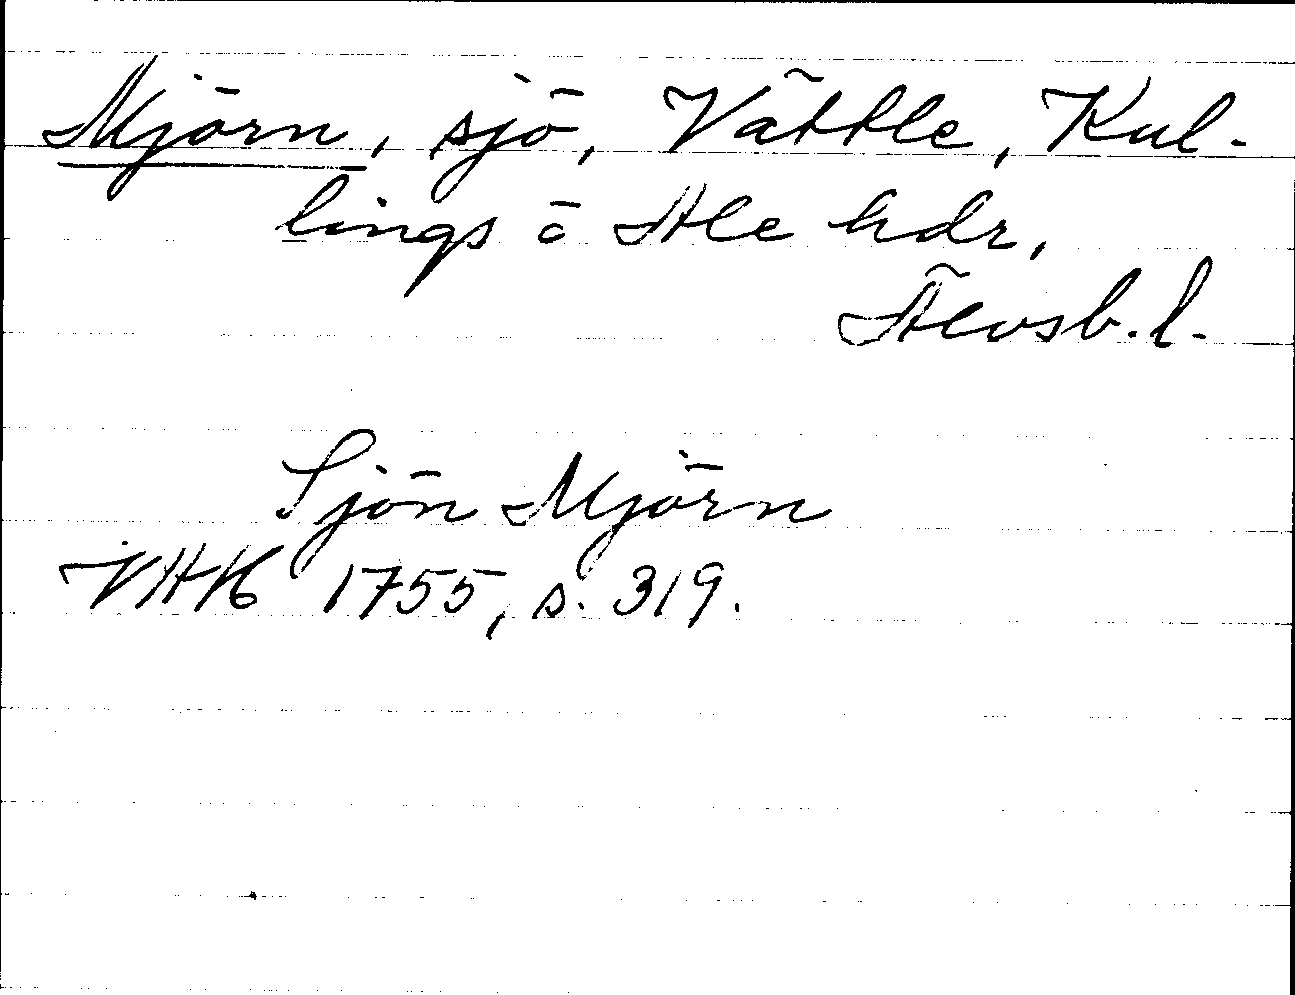 Mjörn, sjö, Vättle, Kul-
lings o Ale hdr,
Älvsb. l.
Sjön Mjörn
VHH 1755, s. 319.